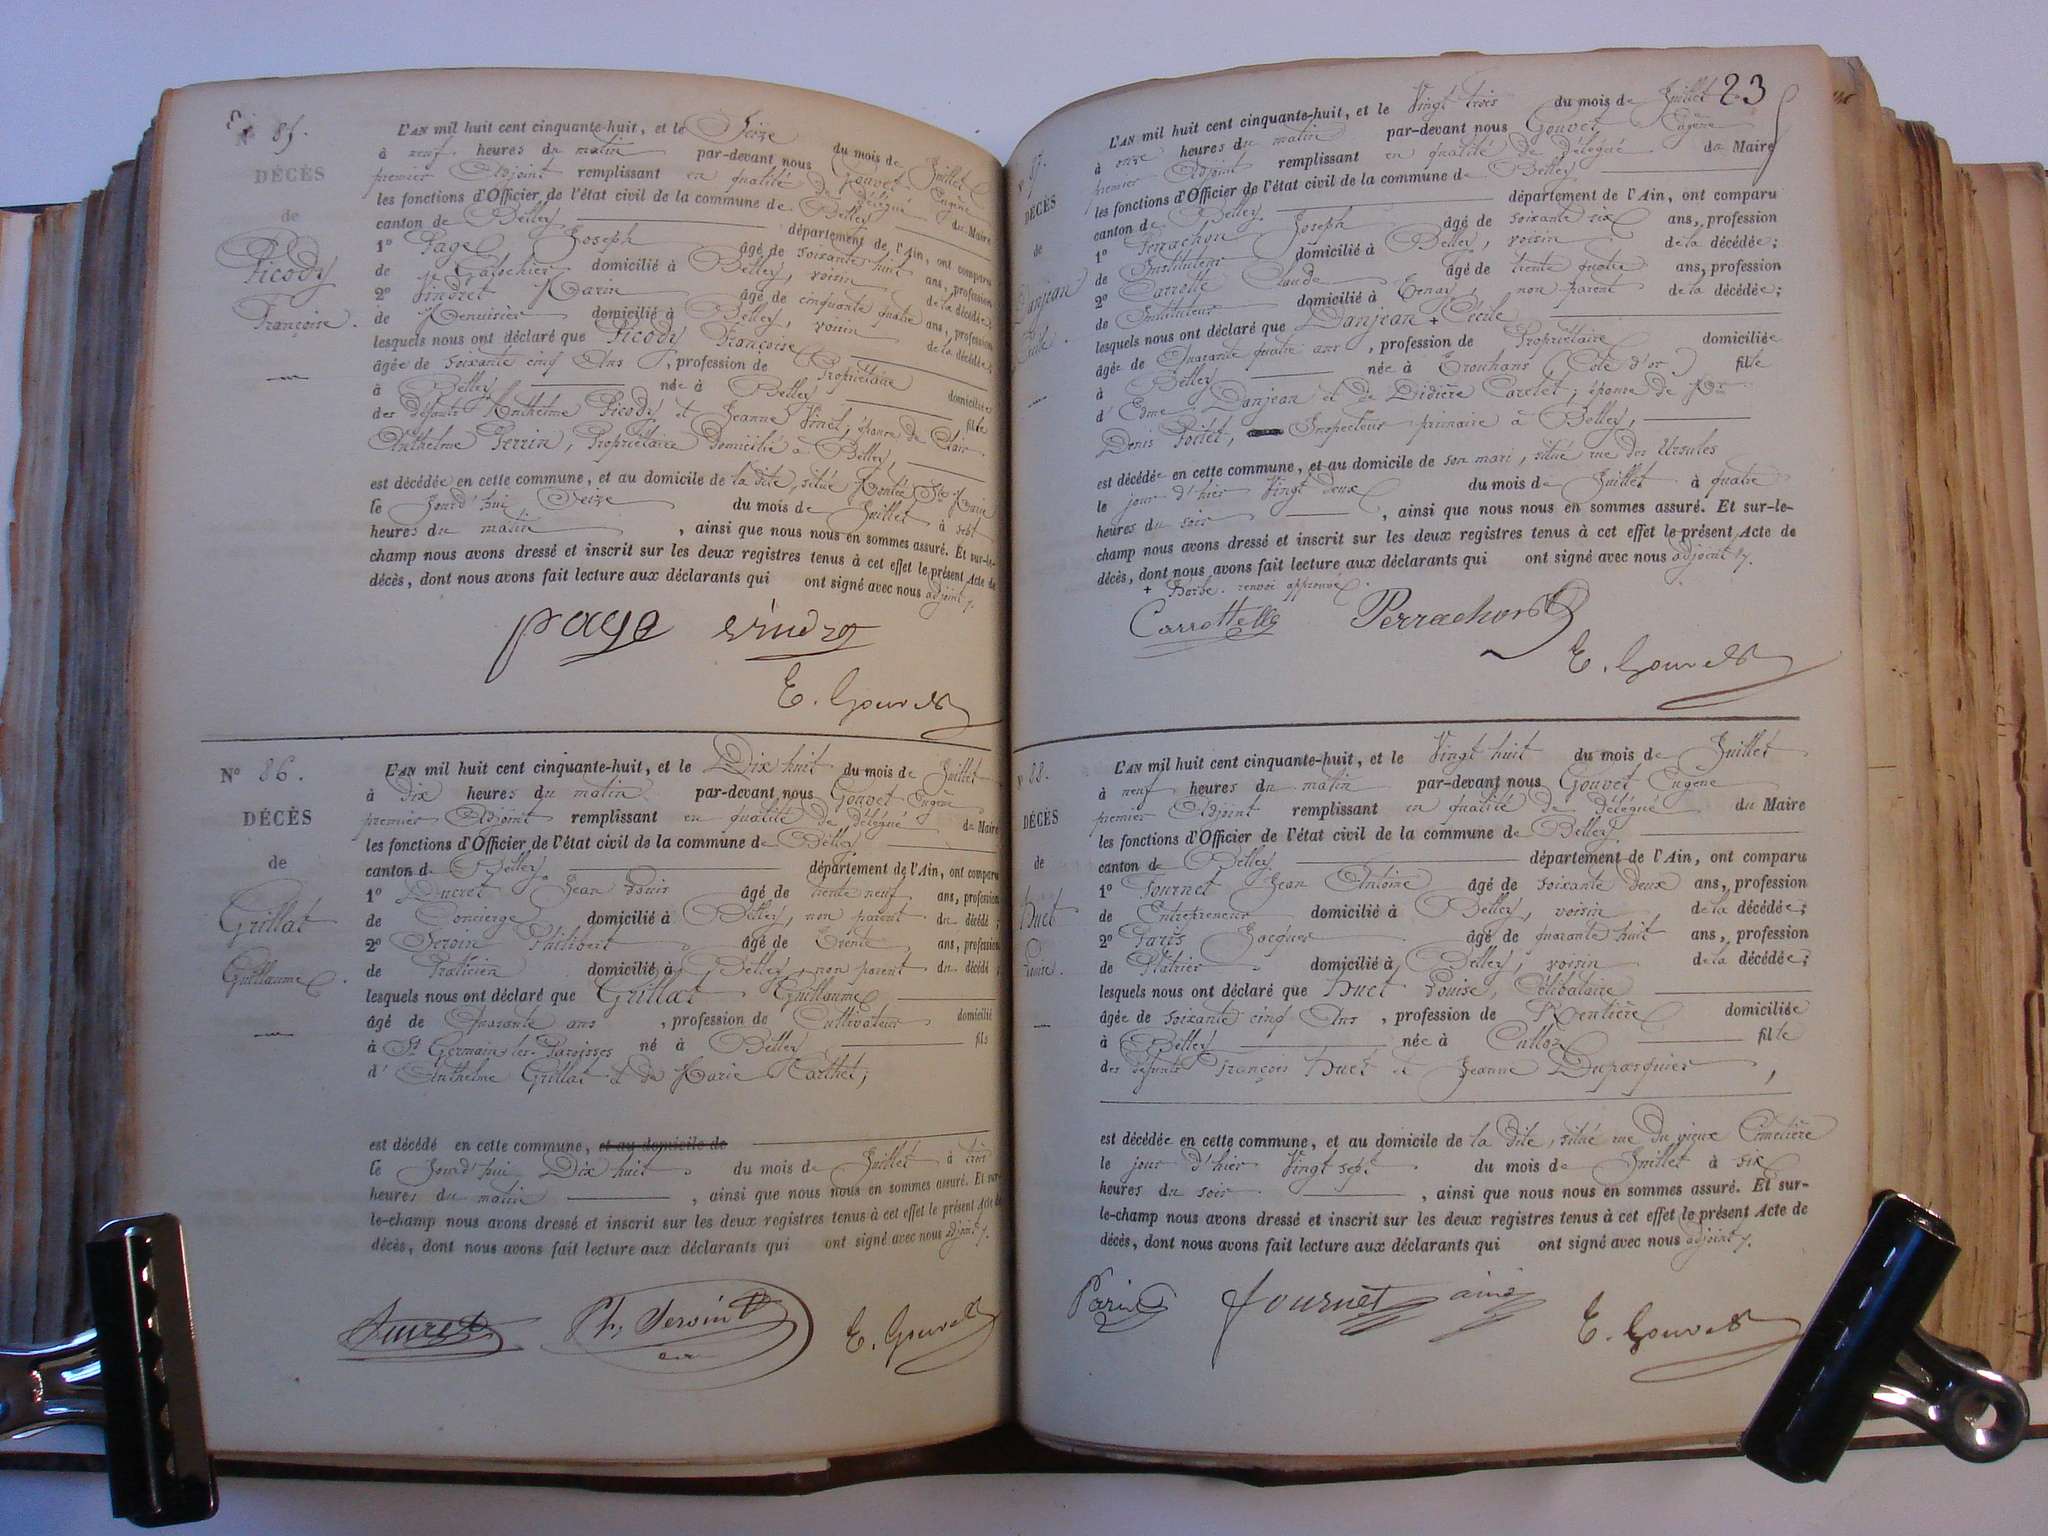 N° 85.
DÉCÈS
de
Picody
Françoise.
L'AN mil huit cent cinquante-huit, et le Seize du mois de Juillet
à neuf heures du matin par-devant nous Gouvet Eugène
premier Adjoint remplissant en qualité de délégué du Maire
les fonctions d'Officier de l'état civil de la commune de Belley
canton de Belley département de l'Ain, ont comparu
1° Page Joseph âgé de soixante huit ans, profession
de Galochier domicilié à Belley, voisin de la décédée;
2° Vindret Marin âgé de cinquante quatre ans, profession
de Menuisier domicilié à Belley, voisin de la décédée;
lesquels nous ont déclaré que Picody Françoise
âgée de soixante cinq Ans, profession de Propriétaire domiciliée
à Belley née à Belley fille
des défunts Anthelme Picody et Jeanne Vinet, épouse de Clair
Anthelme Perrin, Propriétaire domicilié à Belley,
est décédée en cette commune, et au domicile de la dite, situé Montée Ste Marie
le Jourd'hui Seize du mois de Juillet à sept
heures du matin, ainsi que nous nous en sommes assuré. Et sur-le-
champ nous avons dressé et inscrit sur les deux registres tenus à cet effet le présent Acte de
décès, dont nous avons fait lecture aux déclarants qui ont signé avec nous adjoint.
page
E. Gouvet
N° 86.
DÉCÈS
de
Grillat
Guillaume.
L'AN mil huit cent cinquante-huit, et le Dix huit du mois de Juillet
à dix heures du matin par-devant nous Gouvet Eugène
premier Adjoint remplissant en qualité de délégué du Maire
les fonctions d'Officier de l'état civil de la commune de Belley
canton de Belley département de l'Ain, ont comparu
1° Ducret Jean Louis âgé de trente neuf ans, profession
de Concierge domicilié à Belley, non parent du décédé;
2° Servin Philibert âgé de Trente ans, profession
de Praticien domicilié à Belley, non parent du décédé;
lesquels nous ont déclaré que Grillat Guillaume
âgé de Quarante ans, profession de Cultivateur domicilié
à St Germain les Paroisses né à Belley fils
d'Anthelme Grillat et de Marie Marthet;
est décédé en cette commune, et au domicile de
le Jourd'hui Dix huit du mois de Juillet à trois
heures du matin, ainsi que nous nous en sommes assuré. Et sur-
le-champ nous avons dressé et inscrit sur les deux registres tenus à cet effet le présent Acte de
décès, dont nous avons fait lecture aux déclarants qui ont signé avec nous adjoint.
Ducret Ph. Servin E. Gouvet
23
87.
DÉCÈS
de
Danjean
Cécile.
L'AN mil huit cent cinquante-huit, et le Vingt trois du mois de Juillet
à onze heures du matin par-devant nous Gouvet Eugène
premier Adjoint remplissant en qualité de délégué du Maire
les fonctions d'Officier de l'état civil de la commune de Belley
canton de Belley département de l'Ain, ont comparu
1° Perrachon Joseph âgé de soixante six ans, profession
de Instituteur domicilié à Belley, voisin de la décédée;
2° Carrotte Claude âgé de trente quatre ans, profession
de Instituteur domicilié à Tenay, non parent de la décédée;
lesquels nous ont déclaré que Danjean + Cécile
âgée de Quarante quatre ans, profession de Propriétaire domiciliée
à Belley née à Trouhans (Côte d'or) fille
d'Edme Danjean et de Didière Carelet; épouse de Mr
Denis Poitet, Inspecteur primaire à Belley,
est décédée en cette commune, et au domicile de son mari, situé rue des Ursules
le jour d'hier Vingt deux du mois de Juillet à quatre
heures du soir, ainsi que nous nous en sommes assuré. Et sur-le-
champ nous avons dressé et inscrit sur les deux registres tenus à cet effet le présent Acte de
décès, dont nous avons fait lecture aux déclarants qui ont signé avec nous adjoint.
+ Barbe. renvoi approuvé.
Carrotte Perrachon
E. Gouvet
88.
DÉCÈS
de
Huet
Louise.
L'AN mil huit cent cinquante-huit, et le Vingt huit du mois de Juillet
à neuf heures du matin par-devant nous Gouvet Eugène
premier Adjoint remplissant en qualité de délégué du Maire
les fonctions d'Officier de l'état civil de la commune de Belley
canton de Belley département de l'Ain, ont comparu
1° Fournet Jean Antoine âgé de soixante deux ans, profession
de Entrepreneur domicilié à Belley, voisin de la décédée;
2° Paris Jacques âgé de quarante huit ans, profession
de Plâtrier domicilié à Belley, voisin de la décédée;
lesquels nous ont déclaré que Huet Louise, Célibataire
âgée de soixante cinq Ans, profession de Rentière domiciliée
à Belley née à Culloz fille
des défunts François Huet et Jeanne Dupasquier,
est décédée en cette commune, et au domicile de la dite, situé rue du vieux Cimetière
le jour d'hier Vingt sept du mois de Juillet à six
heures du soir, ainsi que nous nous en sommes assuré. Et sur-
le-champ nous avons dressé et inscrit sur les deux registres tenus à cet effet le présent Acte de
décès, dont nous avons fait lecture aux déclarants qui ont signé avec nous adjoint.
Paris fournet ainé E. Gouvet